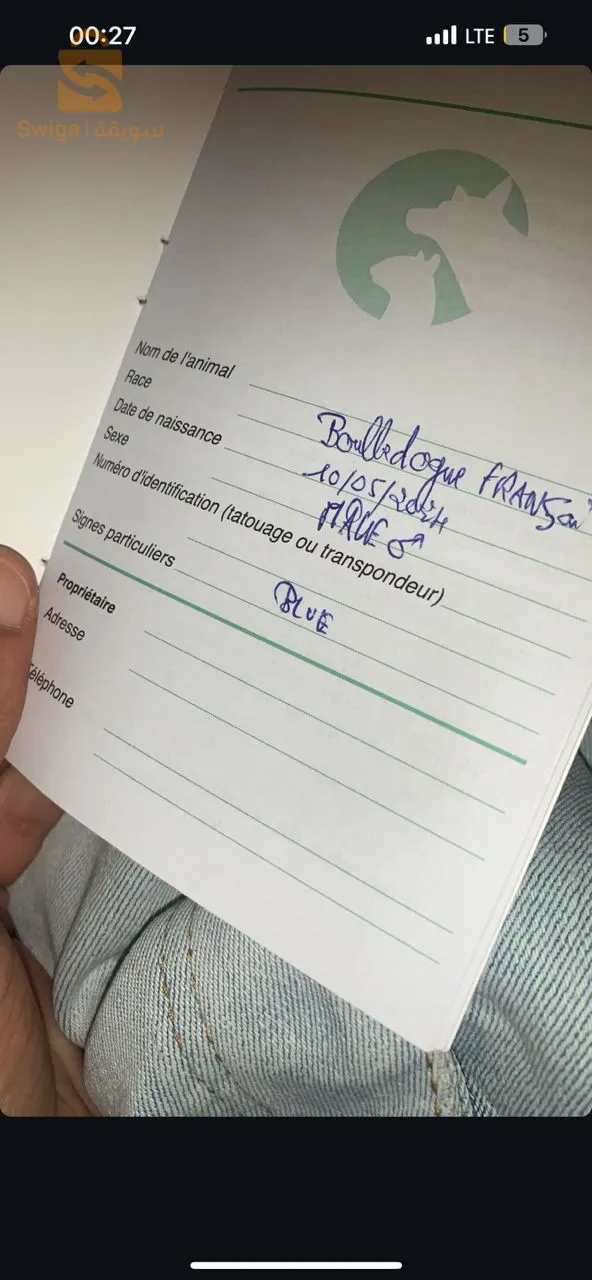 00:27
LTE
5
Swiga | سويقة
Nom de l'animal
Race Boulledogue FRANSai
Date de naissance 10/05/2024
Sexe MALE ♂
Numéro d'identification (tatouage ou transpondeur)
Signes particuliers BLUE
Propriétaire
Adresse
Téléphone